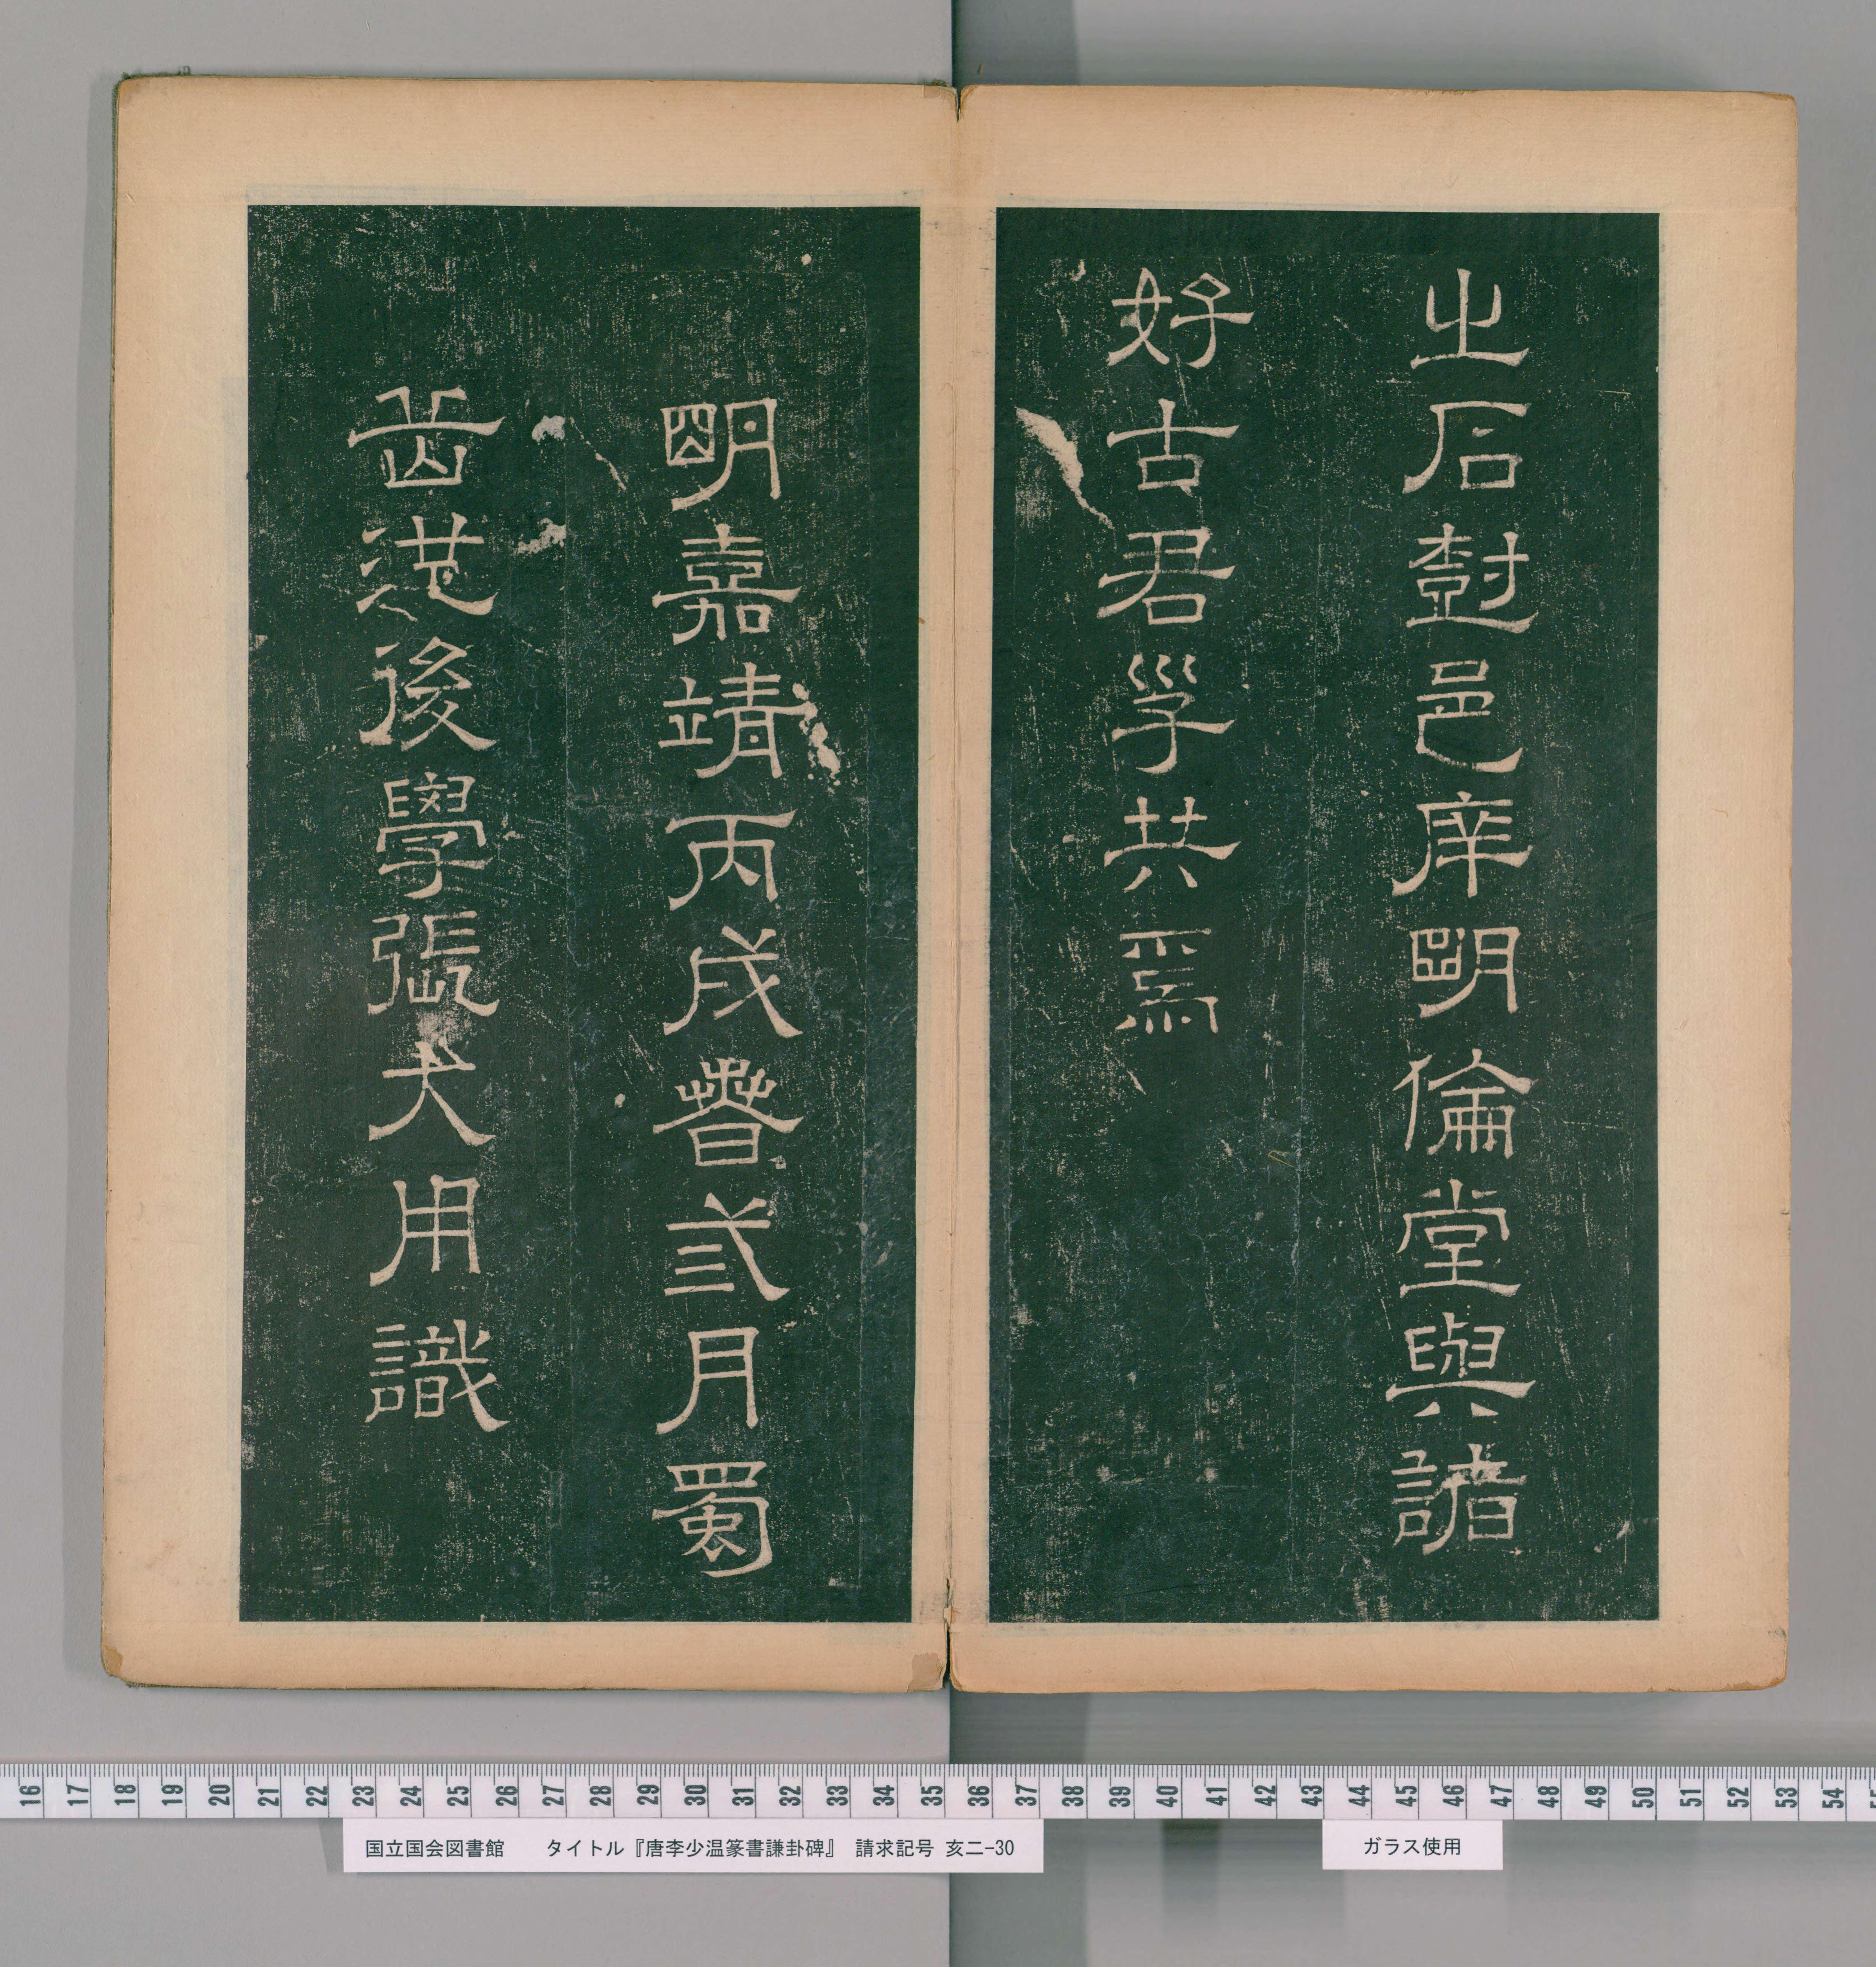 之石樹邑庠明倫堂與諸
好古君子共焉
明嘉靖丙戌春弎月蜀
港後學張大用識
16 17 18 19 20 21 22 23 24 25 26 27 28 29 30 31 32 33 34 35 36 37 38 39 40 41 42 43 44 45 46 47 48 49 50 51 52 53 54
国立国会図書館 タイトル『唐李少温篆書謙卦碑』 請求記号 亥二-30
ガラス使用